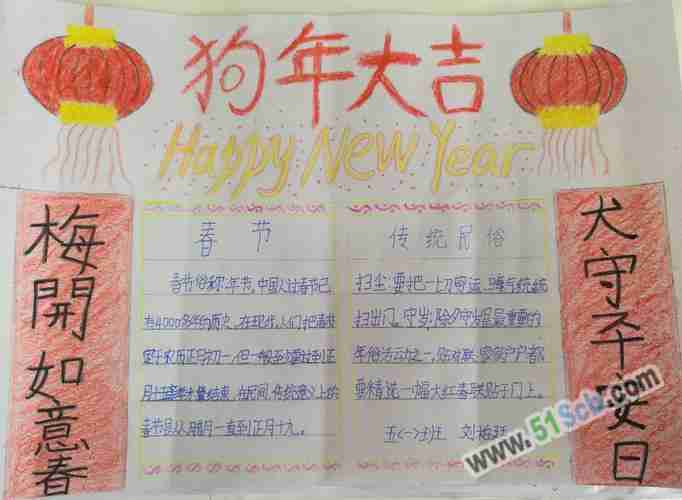 狗年大吉
Happy New Year
梅開如意春
春节
春节俗称"年节,中国人过春节已
有4000多年的历史,在现代,人们把春节
定于农历正月初一,但一般至少要过到正
月十五 结束,在民间,传统意义上的
春节是从腊月一直到正月十九。
传统民俗
扫尘:要把一切 运、晦气统统
扫出门。守岁:除夕守岁是最重要的
年俗活动之一,贴对联:家家户户都
要精选一幅大红春联贴于门上。
五<一>班 刘
犬守平安日
www.51Scb.com